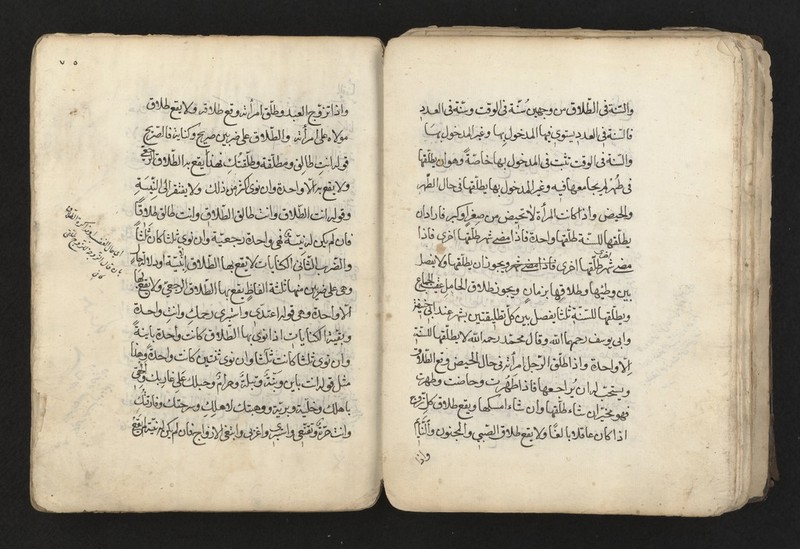 والسنة فى الطلاق من وجهين سنة فى الوقت وسنة فى العدد
فالسنة فى العدد يستوى فيها المدخول بها وغير المدخول بها
والسنة فى الوقت تثبت فى المدخول بها خاصة وهو ان يطلقها
فى طهر لم يجامعها فيه وغير المدخول بها يطلقها فى حال الطهر
والحيض واذا كانت المرأة لا تحيض من صغر او كبر فاراد ان
يطلقها للسنة طلقها واحدة فاذا مضى شهر طلقها اخرى فاذا
مضى شهر طلقها اخرى ويجوز ان يطلقها ولا يفصل
بين وطيها وطلاقها بزمان ويجوز طلاق الحامل عقيب الجماع
ويطلقها للسنة ثلثا يفصل بين كل تطليقتين بشهر عند ابى حنيفة
وابى يوسف رحمهما الله وقال محمد رحمه الله لا يطلقها للسنة
الا واحدة واذا طلق الرجل امرأته فى حال الحيض وقع الطلاق
ويستحب له ان يراجعها فاذا طهرت وحاضت وطهرت
فهو مخير ان شاء طلقها وان شاء امسكها ويقع طلاق كل زوج
اذا كان عاقلا بالغا ولا يقع طلاق الصبى والمجنون والنائم
واذا
٧٥
واذا تزوج العبد وطلق امرأته وقع طلاقه ولا يقع طلاق
مولاه على امرأته والطلاق على ضربين صريح وكناية فالصريح
قوله انت طالق ومطلقة وطلقتك فهذا يقع به الطلاق الرجعى
ولا يقع به الا واحدة وان نوى اكثر من ذلك ولا يفتقر الى النية
وقوله انت الطلاق وانت طالق الطلاق وانت طالق طلاقا
فان لم يكن له نية فهى واحدة رجعية وان نوى ثلثا كان ثلثا
والضرب الثانى الكنايات لا يقع بها الطلاق الا بنية او دلالة حال
وهى على ضربين منها ثلثة الفاظ يقع بها الطلاق الرجعى ولا يقع بها
الا واحدة وهى قوله اعتدى واستبرى رحمك وانت واحدة
وبقية الكنايات اذا نوى بها الطلاق كانت واحدة باينة
وان نوى ثلثا كانت ثلثا وان نوى ثنتين كانت واحدة وهذا
مثل قوله انت باين وبتة وبتلة وحرام وحبلك على غاربك والحقى
باهلك وخلية وبرية ووهبتك لاهلك وسرحتك وفارقتك
وانت حرة وتقنعى واستترى واغربى وابتغى الازواج فان لم يكن له نية لم يقع